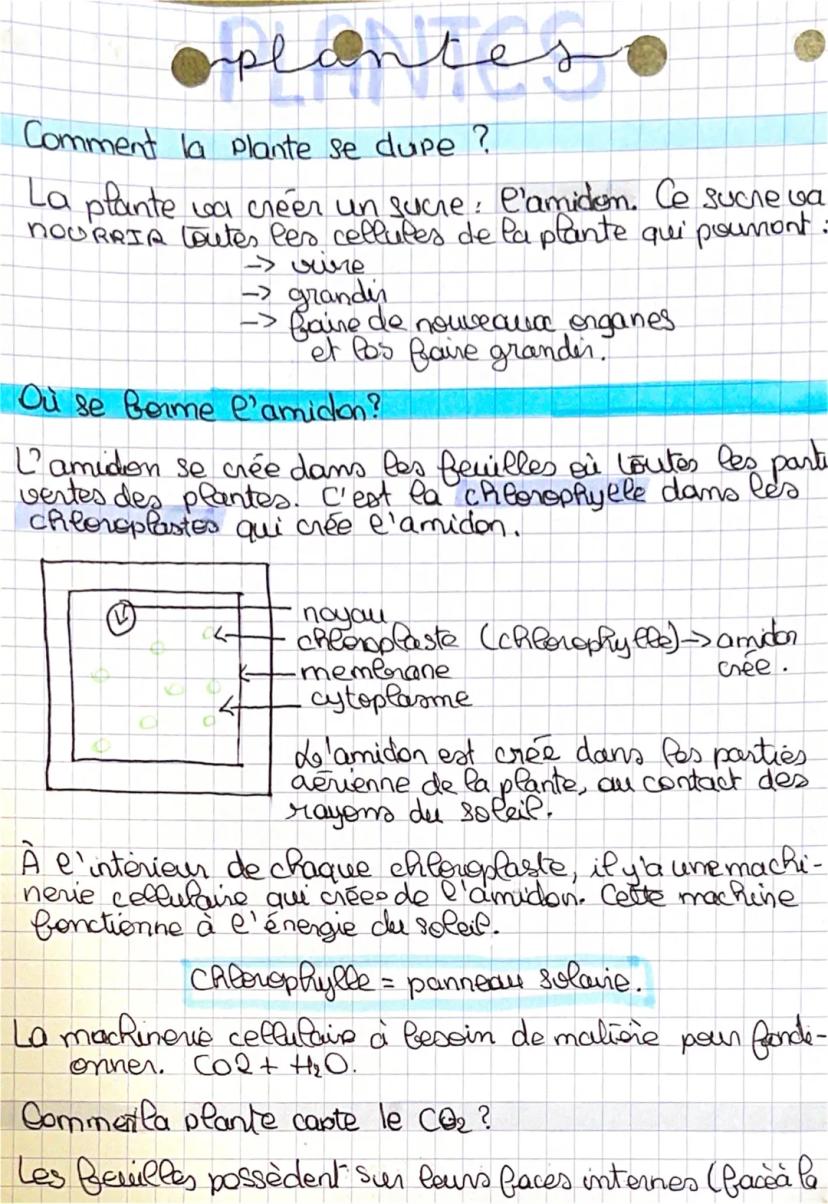 PLANTES
plantes
Comment la plante se dupe ?
La plante va créer un sucre : l'amidon. Ce sucre va
NOURRIR toutes les cellules de la plante qui pourront :
-> vivre
-> grandir
-> faire de nouveaux organes
et les faire grandir.
Où se forme l'amidon?
L'amidon se crée dans les feuilles où toutes les parti
vertes des plantes. C'est la chlorophylle dans les
chloroplastes qui crée l'amidon.
noyau
chloroplaste (chlorophylle)-> amidon
crée.
membrane
cytoplasme
L'amidon est crée dans les parties
aérienne de la plante, au contact des
rayons du soleil.
À l'intérieur de chaque chloroplaste, il y'a une machi-
nerie cellulaire qui crées de l'amidon. Cette machine
fonctienne à l'énergie du soleil.
Chlorophylle = panneau solaire.
La machinerie cellulaire à besoin de matière pour foncti-
onner. CO2 + H₂O.
Comment la plante capte le CO₂ ?
Les feuilles possèdent sur leurs faces internes (face à la